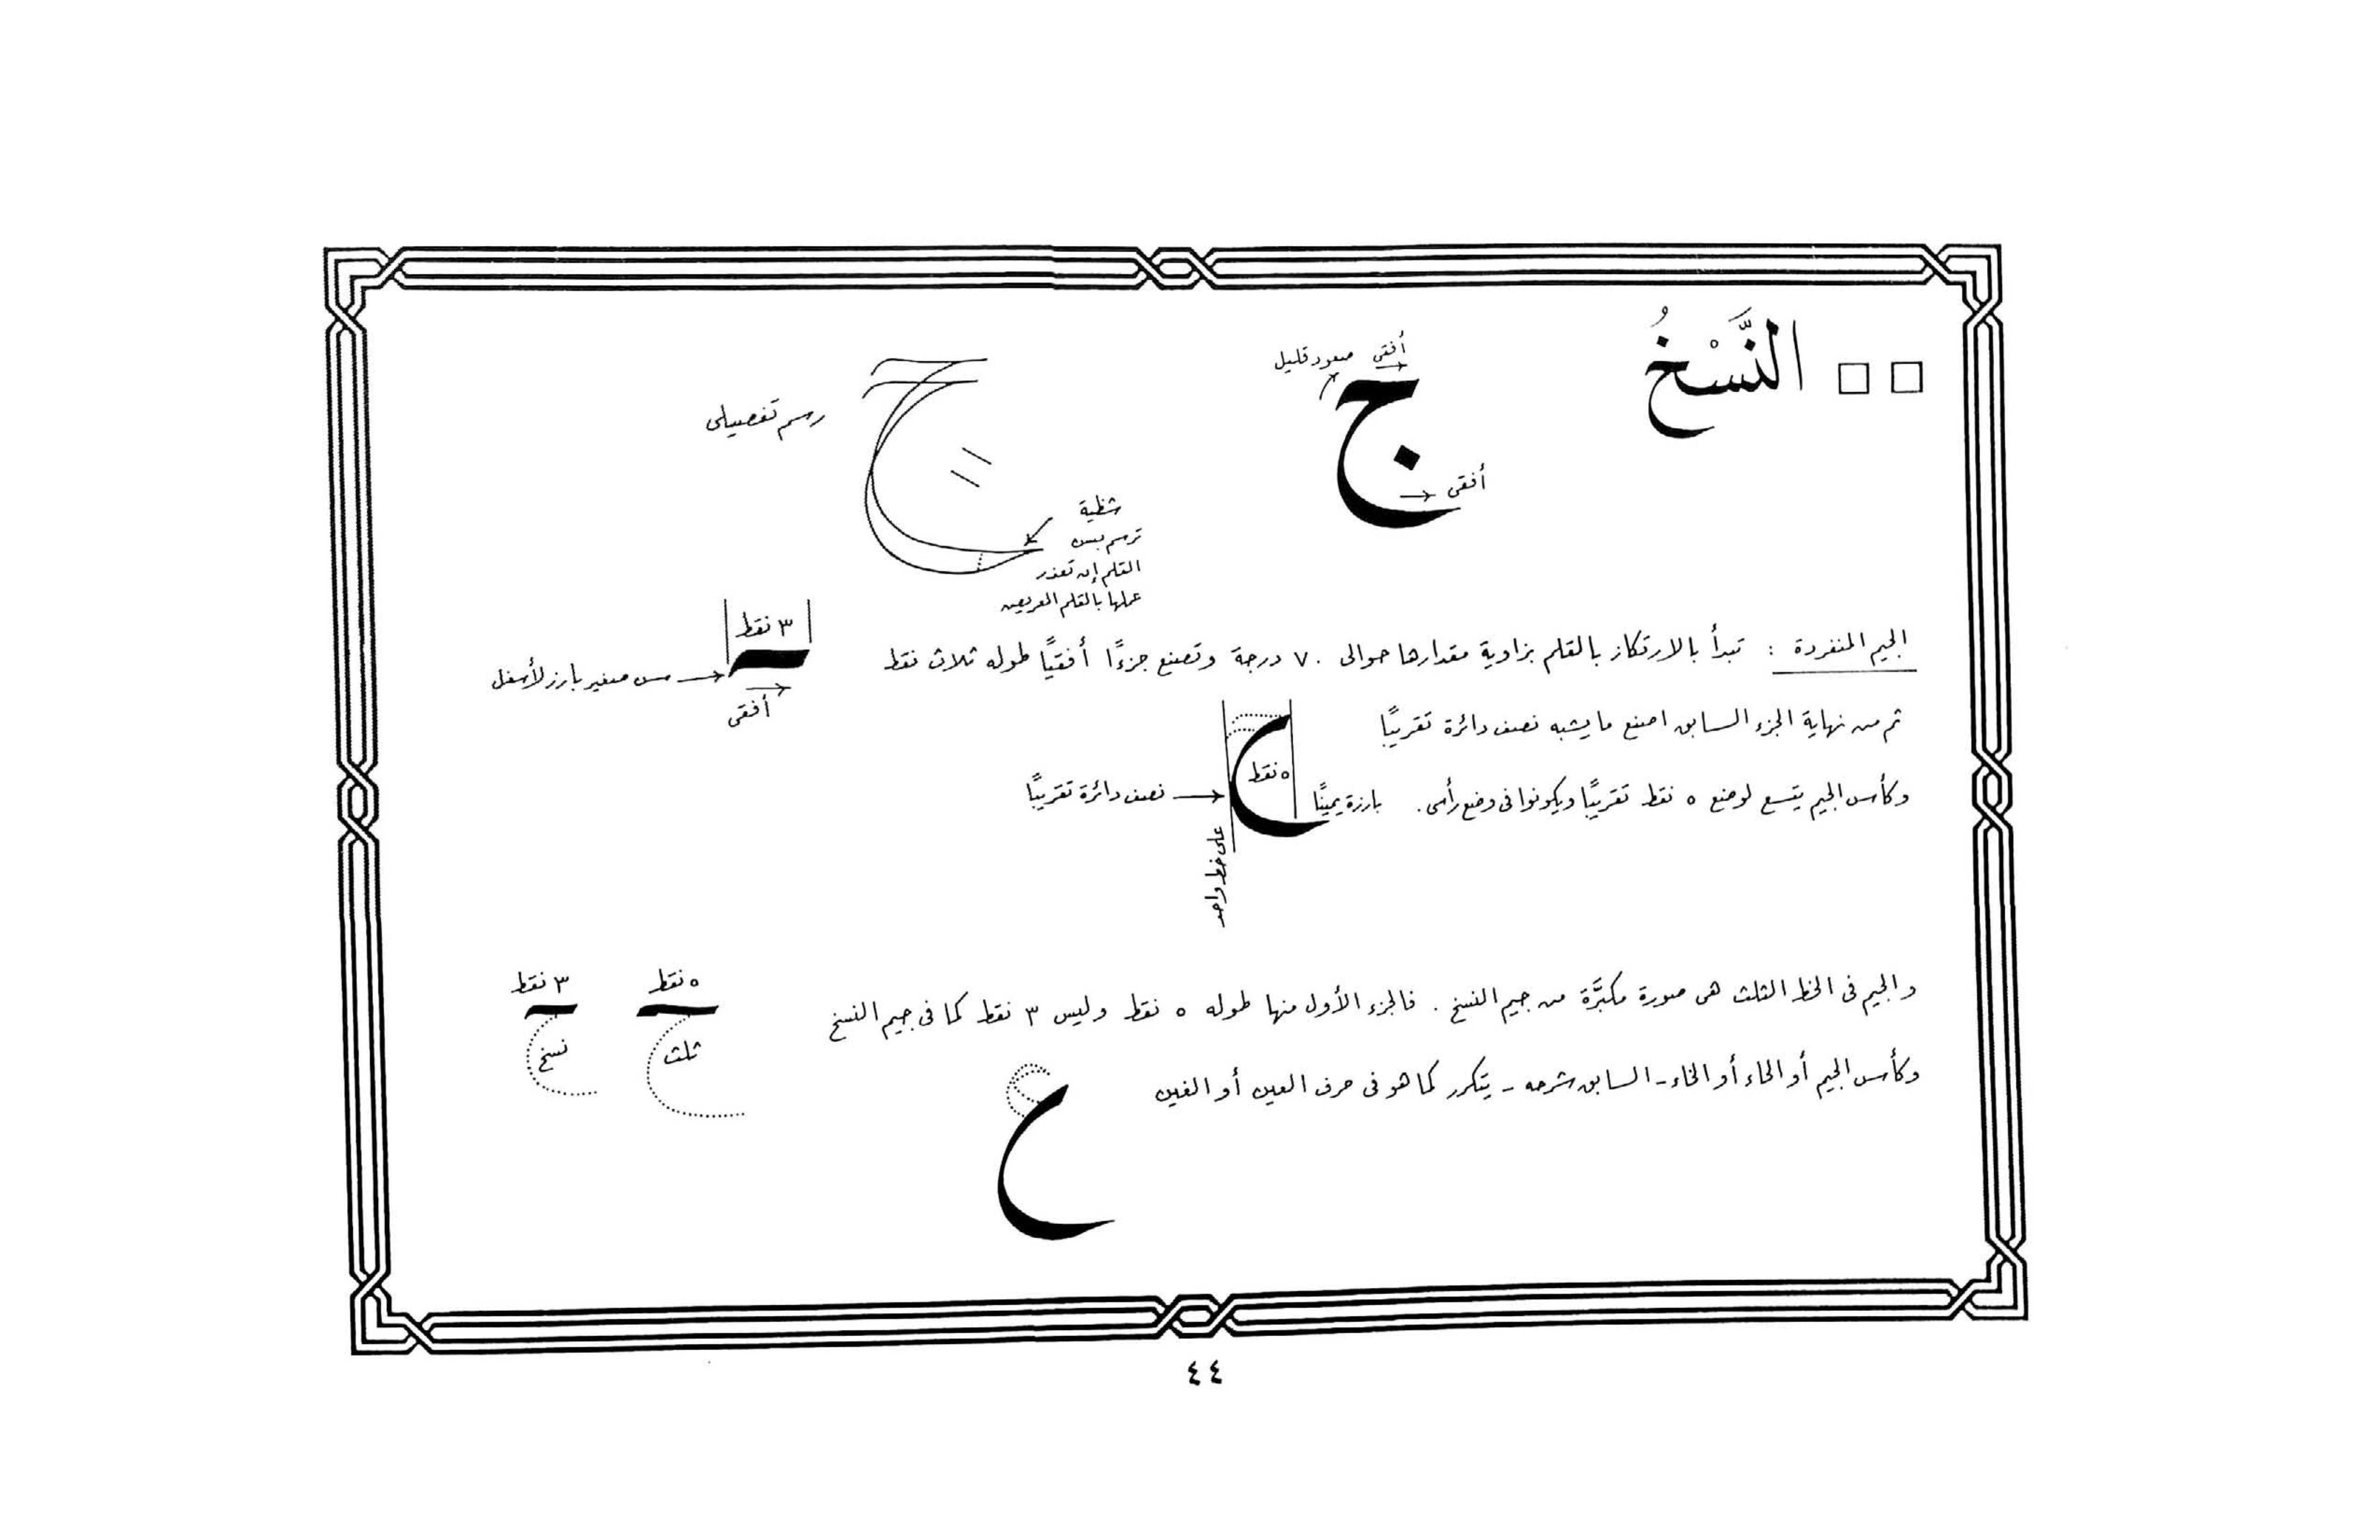 النَّسْخُ
أفقى
صعود قليل
ج
أفقى
رسم تفصيلى
شظية
ترسم بسن
القلم إن تعذر
عملها بالقلم العريض
الجيم المنفردة : تبدأ بالارتكاز بالقلم بزاوية مقدارها حوالى ٧٠ درجة وتصنع جزءًا أفقيًا طوله ثلاث نقط
٣ نقط
سن صغير بارز لأسفل
أفقى
ثم من نهاية الجزء السابق اصنع ما يشبه نصف دائرة تقريبًا
وكأس الجيم يتسع لوضع ٥ نقط تقريبًا ويكونوا فى وضع رأسى .
بارزة يمينًا
٥ نقط
نصف دائرة تقريبًا
على خط واحد
والجيم فى الخط الثلث هى صورة مكبَّرة من جيم النسخ . فالجزء الأول منها طوله ٥ نقط وليس ٣ نقط كما فى جيم النسخ
٥ نقط
ثلث
٣ نقط
نسخ
وكأس الجيم أو الحاء أو الخاء - السابق شرحه - يتكرر كما هو فى حرف العين أو الغين
٤٤